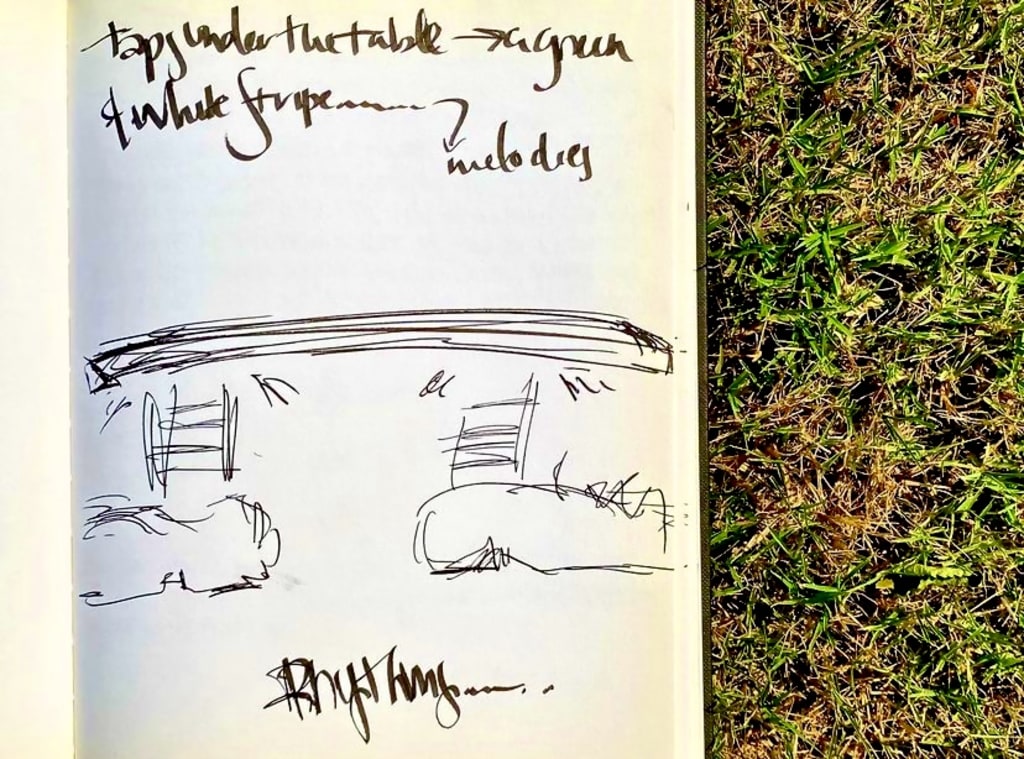 taps under the table → a green
& white stripe.......
melodies
Rhythms......